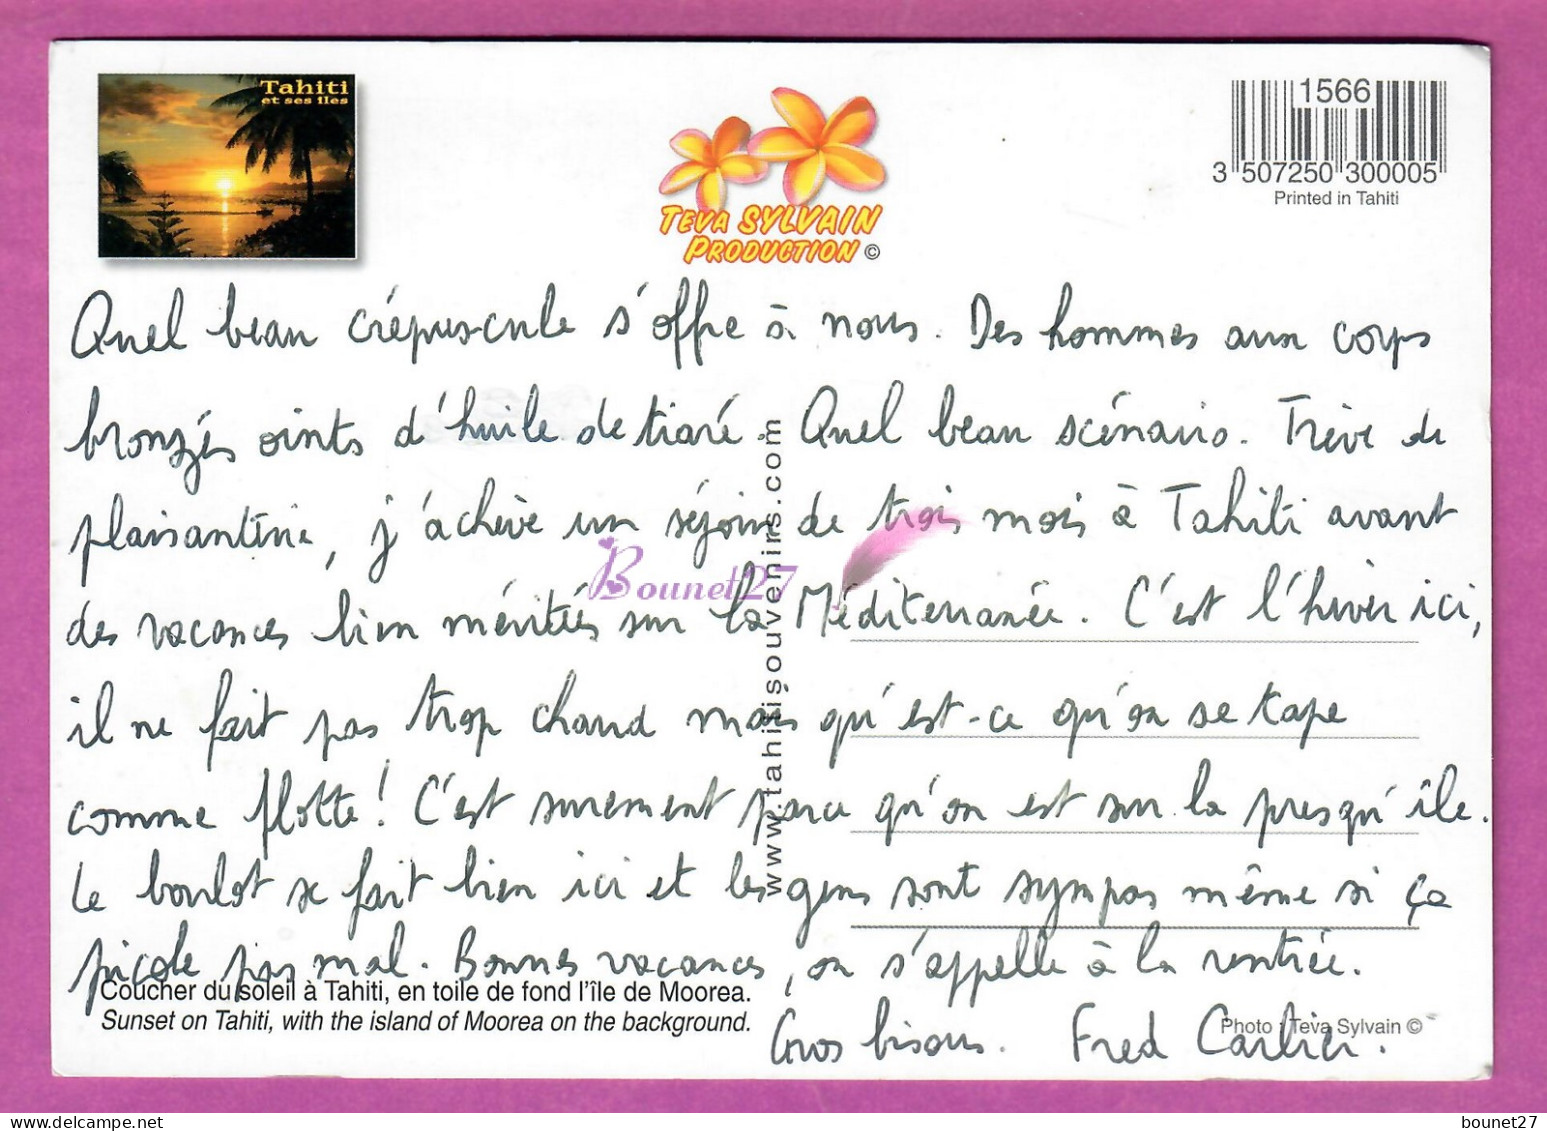 Tahiti
et ses îles
TEVA SYLVAIN
PRODUCTION ©
1566
3 507250 300005
Printed in Tahiti
Quel beau crépuscule s'offre à nous. Des hommes aux corps
bronzés oints d'huile de tiaré. Quel beau scénario. Trève de
plaisanterie, j'achève un séjour de trois mois à Tahiti avant
des vacances bien méritées sur la Méditerranée. C'est l'hiver ici,
il ne fait pas trop chaud mais qu'est-ce qu'on se tape
comme flotte! C'est surement parce qu'on est sur la presqu'île.
Le boulot se fait bien ici et les gens sont sympas même si ça
picole pas mal. Bonnes vacances, on s'appelle à la rentrée.
Gros bisous. Fred Carlier.
www.tahitisouvenirs.com
Bounet27
Coucher du soleil à Tahiti, en toile de fond l'île de Moorea.
Sunset on Tahiti, with the island of Moorea on the background.
Photo : Teva Sylvain ©
bounet27